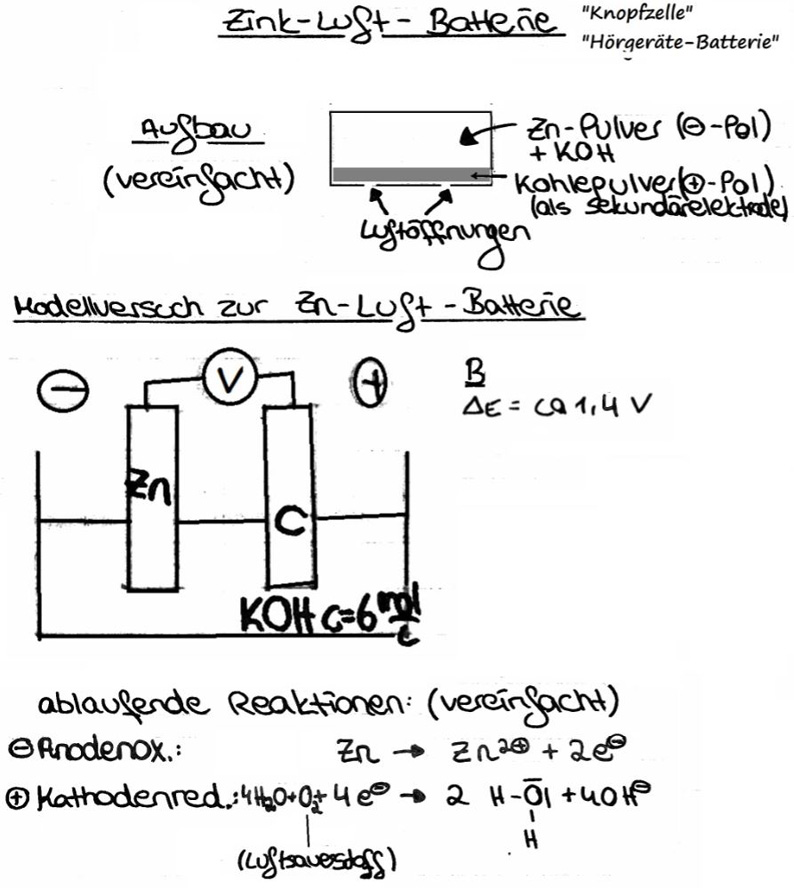 Zink-Luft-Batterie "Knopfzelle"
"Hörgeräte-Batterie"
Aufbau
(vereinfacht)
Zn-Pulver (⊖-Pol)
+ KOH
Kohlepulver(⊕-Pol)
(als Sekundärelektrode)
Luftöffnungen
Modellversuch zur Zn-Luft-Batterie
⊖ V ⊕
B
ΔE = ca 1,4 V
Zn
C
KOH c=6 mol/L
ablaufende Reaktionen: (vereinfacht)
⊖Anodenox.: Zn → Zn²⊕ + 2e⊖
⊕ Kathodenred.: 4H₂O+O₂+ 4e⊖ → 2 H-O̅| + 4OH⊖
H
(Luftsauerstoff)